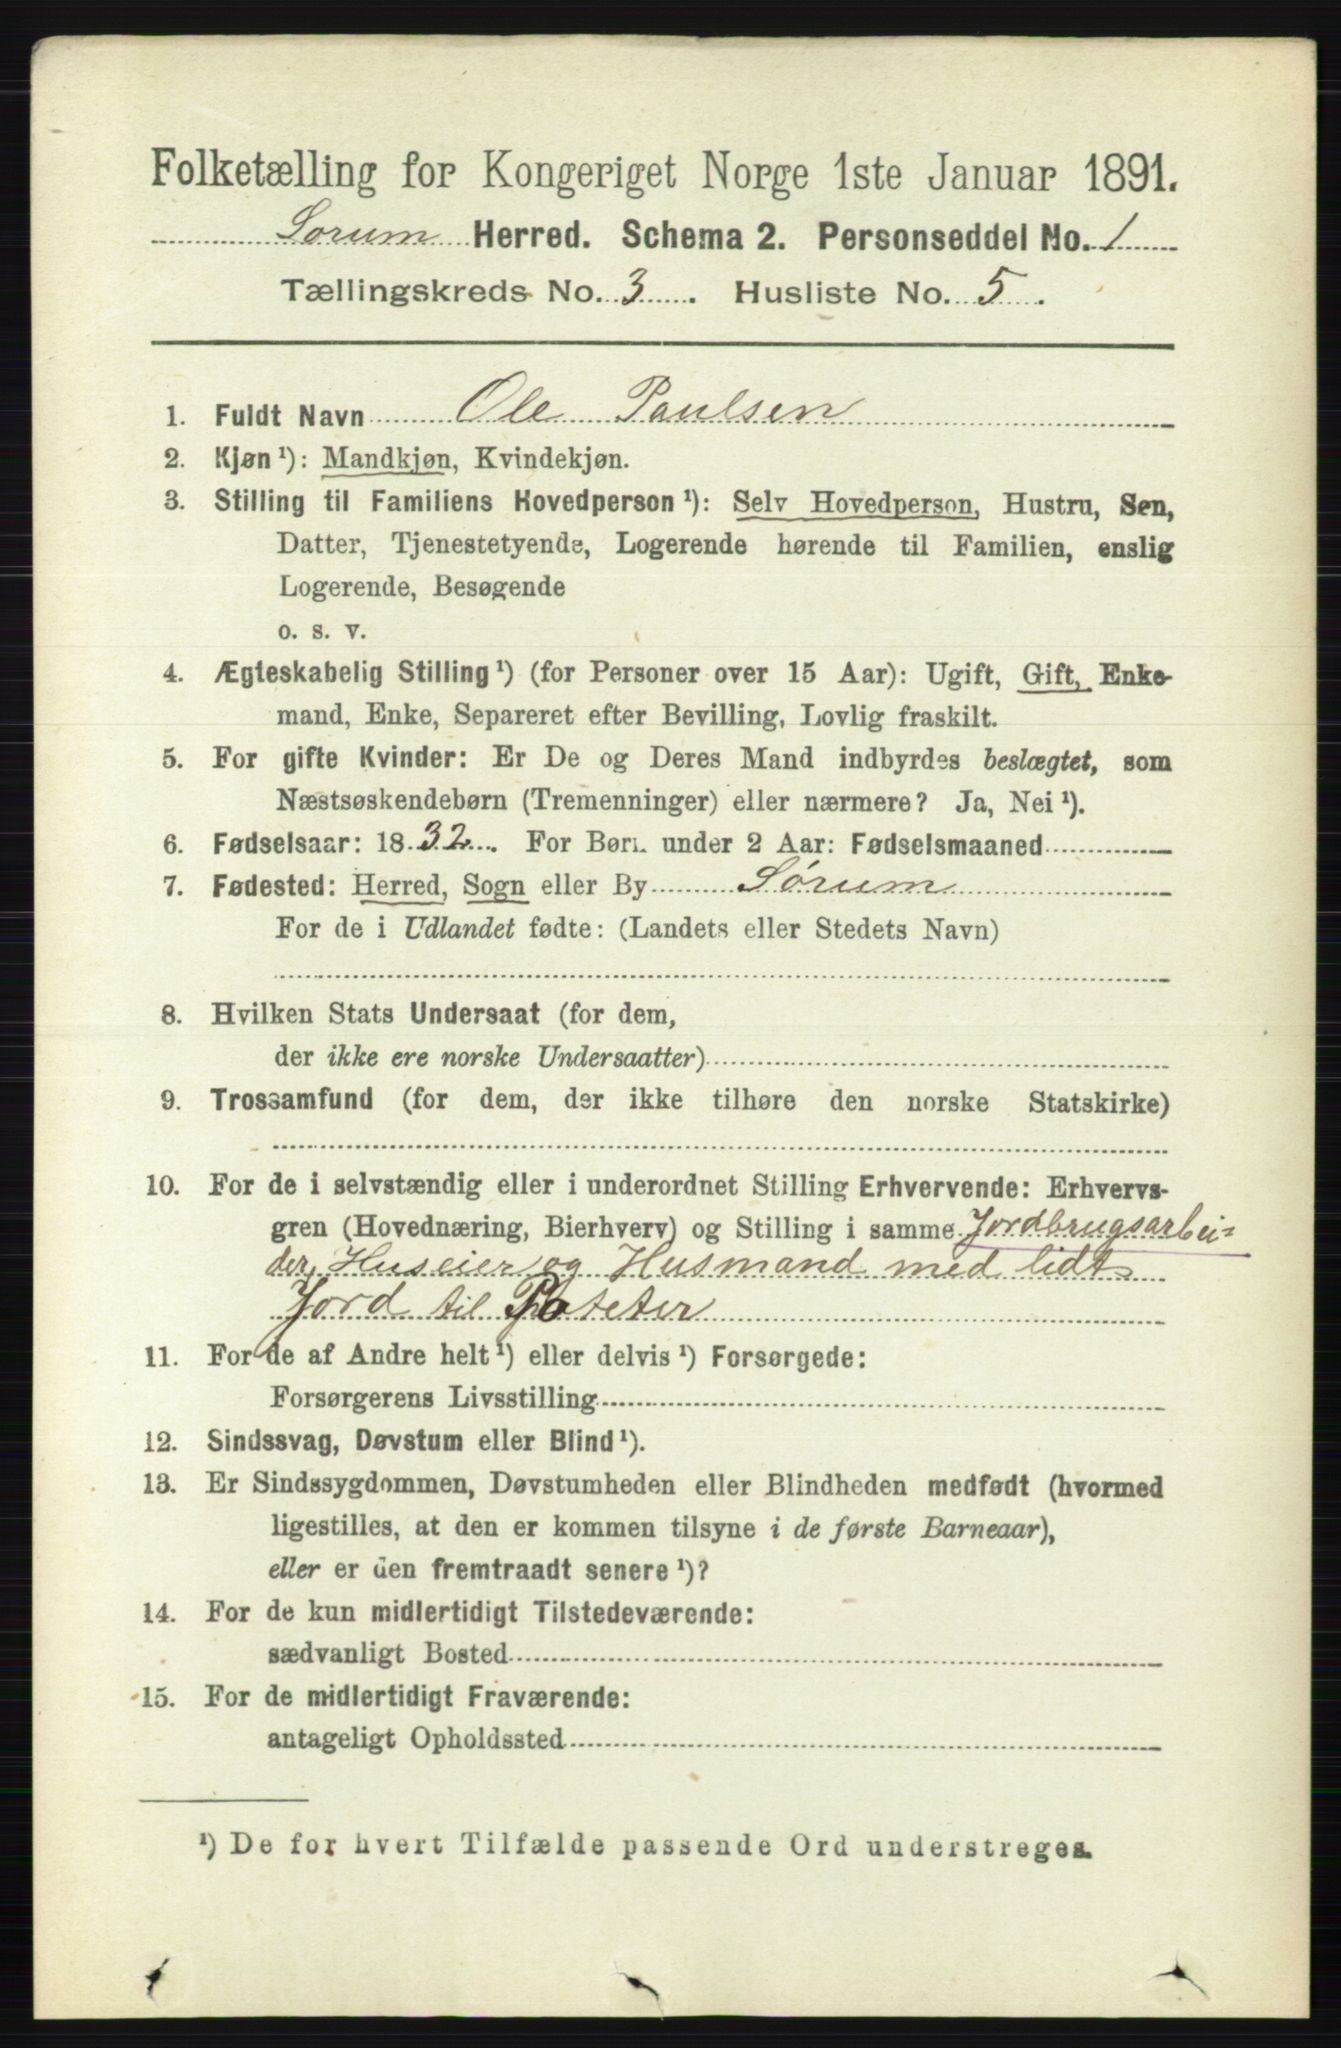 Folketælling for Kongeriget Norge 1ste Januar 1891.
Sorum Herred. Schema 2. Personseddel No. 1
Tællingskreds No. 3. Husliste No. 5.
1. Fuldt Navn Ole Paulsen
2. Kjøn ¹): Mandkjøn, Kvindekjøn.
3. Stilling til Familiens Hovedperson ¹): Selv Hovedperson, Hustru, Søn,
Datter, Tjenestetyende, Logerende hørende til Familien, enslig
Logerende, Besøgende
o. s. v.
4. Ægteskabelig Stilling ¹) (for Personer over 15 Aar): Ugift, Gift, Enke-
mand, Enke, Separeret efter Bevilling, Lovlig fraskilt.
5. For gifte Kvinder: Er De og Deres Mand indbyrdes beslægtet, som
Næstsøskendebørn (Tremenninger) eller nærmere? Ja, Nei ¹).
6. Fødselsaar: 1832. For Børn under 2 Aar: Fødselsmaaned
7. Fødested: Herred, Sogn eller By Sørum
For de i Udlandet fødte: (Landets eller Stedets Navn)
8. Hvilken Stats Undersaat (for dem,
der ikke ere norske Undersaatter)
9. Trossamfund (for dem, der ikke tilhøre den norske Statskirke)
10. For de i selvstændig eller i underordnet Stilling Erhvervende: Erhvervs-
gren (Hovednæring, Bierhverv) og Stilling i samme Jordbrugsarbei-
der, Huseier og Husmand med lidt
Jord til Poteter
11. For de af Andre helt ¹) eller delvis ¹) Forsørgede:
Forsørgerens Livsstilling
12. Sindssvag, Døvstum eller Blind ¹).
13. Er Sindssygdommen, Døvstumheden eller Blindheden medfødt (hvormed
ligestilles, at den er kommen tilsyne i de første Barneaar),
eller er den fremtraadt senere ¹)?
14. For de kun midlertidigt Tilstedeværende:
sædvanligt Bosted
15. For de midlertidigt Fraværende:
antageligt Opholdssted
¹) De for hvert Tilfælde passende Ord understreges.